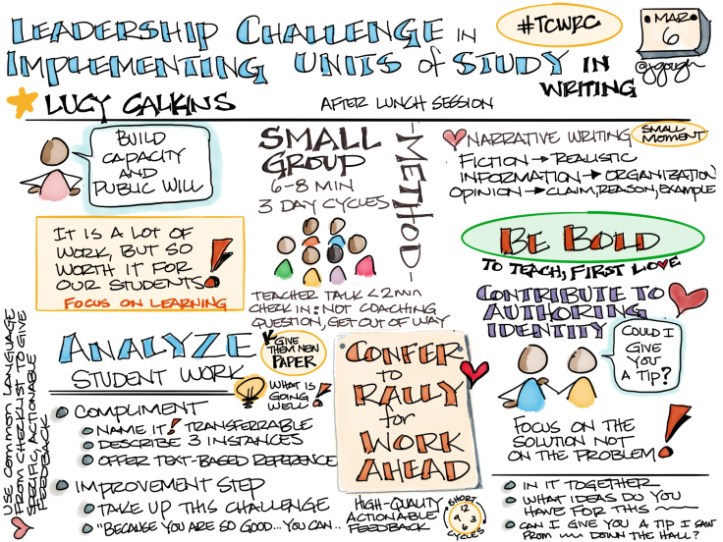 LEADERSHIP CHALLENGE IN
IMPLEMENTING UNITS of STUDY IN
WRITING
#TCWRC
MAR
6
@jgough
LUCY CALKINS
AFTER LUNCH SESSION
BUILD
CAPACITY
AND
PUBLIC WILL
IT IS A LOT OF
WORK, BUT SO
WORTH IT FOR
OUR STUDENTS!
FOCUS ON LEARNING
SMALL
GROUP
-METHOD-
6-8 MIN
3 DAY CYCLES
TEACHER TALK <2min
CHECK IN: NOT COACHING
QUESTION, GET OUT OF WAY
NARRATIVE WRITING
SMALL
MOMENT
FICTION → REALISTIC
INFORMATION → ORGANIZATION
OPINION → CLAIM, REASON, EXAMPLE
BE BOLD
TO TEACH, FIRST LOVE
CONTRIBUTE TO
AUTHORING
IDENTITY
COULD I
GIVE
YOU
A TIP?
FOCUS ON THE
SOLUTION NOT
ON THE PROBLEM!
IN IT TOGETHER
WHAT IDEAS DO YOU
HAVE FOR THIS
CAN I GIVE YOU A TIP I SAW
FROM DOWN THE HALL?
USE COMMON LANGUAGE
FROM CHECKLIST TO GIVE
SPECIFIC, ACTIONABLE
FEEDBACK
ANALYZE
STUDENT WORK
GIVE
THEM NEW
PAPER
WHAT IS
GOING
WELL!
COMPLIMENT
NAME IT! TRANSFERRABLE
DESCRIBE 3 INSTANCES
OFFER TEXT-BASED REFERENCE
IMPROVEMENT STEP
TAKE UP THIS CHALLENGE
"BECAUSE YOU ARE SO GOOD...YOU CAN..
CONFER
to
RALLY
for
WORK
AHEAD
HIGH-QUALITY
ACTIONABLE
FEEDBACK
SHORT
12
9 3
6
CYCLES